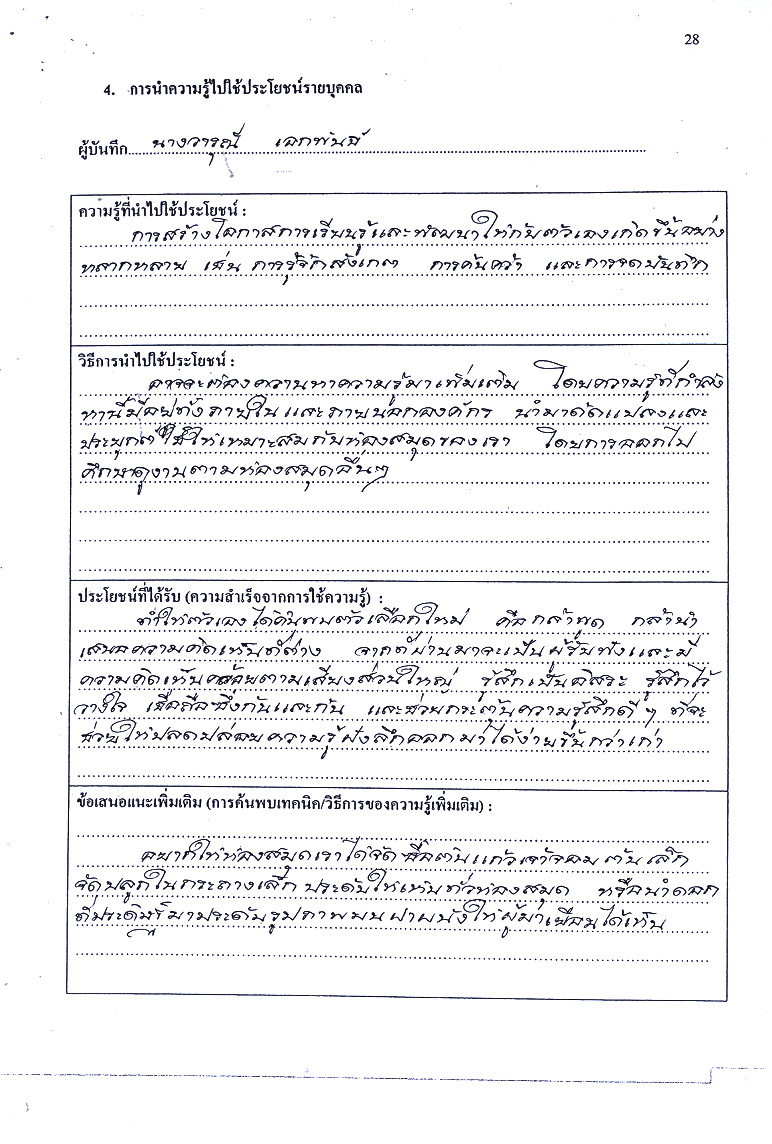 28
4. การนำความรู้ไปใช้ประโยชน์รายบุคคล
ผู้บันทึก นางวารุณี เอกพันธ์
ความรู้ที่นำไปใช้ประโยชน์ :
การสร้างโอกาสการเรียนรู้และพัฒนาให้กับตัวเองเกิดขึ้นอย่าง
หลากหลาย เช่น การรู้จักสังเกต การค้นคว้า และการจดบันทึก
วิธีการนำไปใช้ประโยชน์ :
อาจจะต้องควานหาความรู้มาเพิ่มเติม โดยความรู้ที่กำลัง
หานี้มีอยู่ทั้งภายในและภายนอกองค์กร นำมาดัดแปลงและ
ประยุกต์ใช้ให้เหมาะสมกับห้องสมุดของเรา โดยการออกไป
ศึกษาดูงานตามห้องสมุดอื่นๆ
ประโยชน์ที่ได้รับ (ความสำเร็จจากการใช้ความรู้) :
ทำให้ตัวเองได้ค้นพบตัวเลือกใหม่ คือกล้าพูด กล้านำ
เสนอความคิดเห็นที่ต่าง จากที่ผ่านมาจะเป็นผู้รับฟังและมี
ความคิดเห็นคล้อยตามเสียงส่วนใหญ่ รู้สึกเป็นอิสระ รู้สึกไว้
วางใจ เชื่อถือซึ่งกันและกัน และช่วยกระตุ้นความรู้สึกดีๆ ที่จะ
ช่วยให้ปลดปล่อยความรู้ฝังลึกออกมาได้ง่ายขึ้นกว่าเก่า
ข้อเสนอแนะเพิ่มเติม (การค้นพบเทคนิค/วิธีการของความรู้เพิ่มเติม) :
อยากให้ห้องสมุดเราได้จัดซื้อต้นแก้วเจ้าจอม ต้นเล็ก
จัดปลูกในกระถางเล็ก ประดับให้เห็นทั่วห้องสมุด หรือนำดอก
ที่ประดิษฐ์มาประดับรูปภาพบนฝาผนังให้ผู้มาเยือนได้เห็น